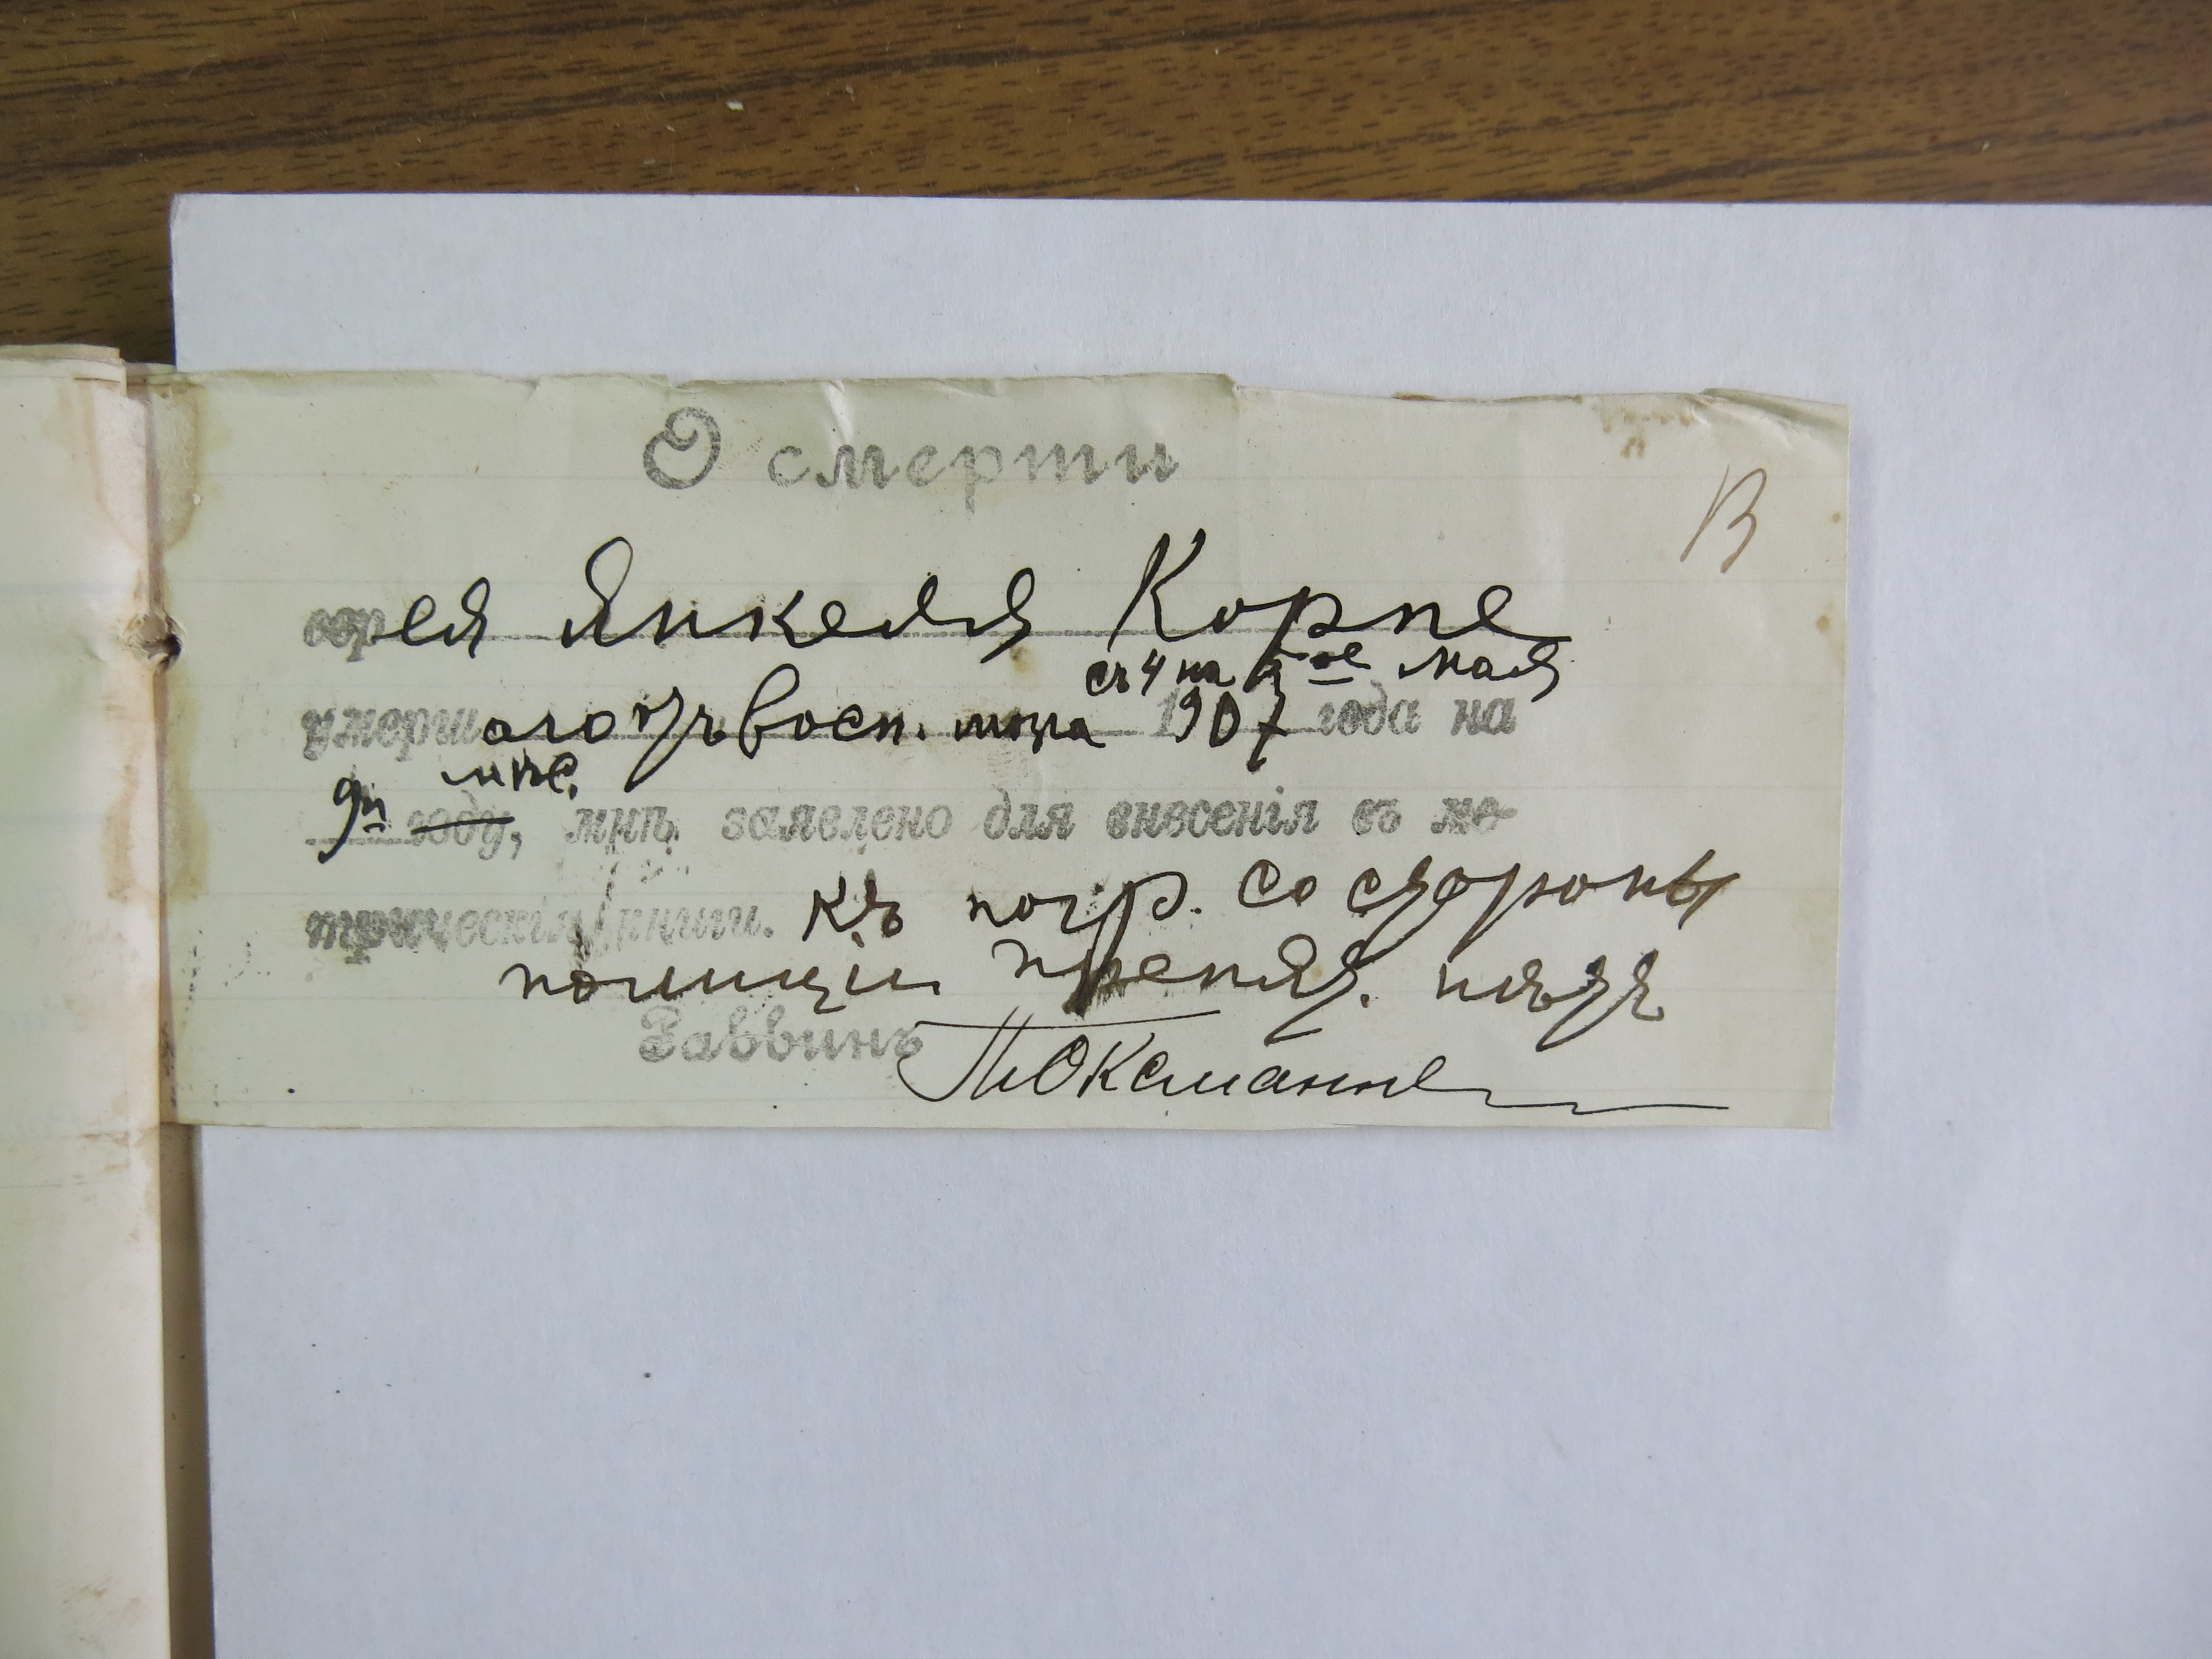 О смерти
В
еврея Янкеля Корпе
съ 4 на 5ое мая
умершаго отъ восп. мозга 1907 года на
мѣс.
9м году, мнѣ заявлено для внесенія въ ме-
трическія книги. къ погр. со стороны
полиціи препят. нѣтъ
Раввинъ Оксманъ